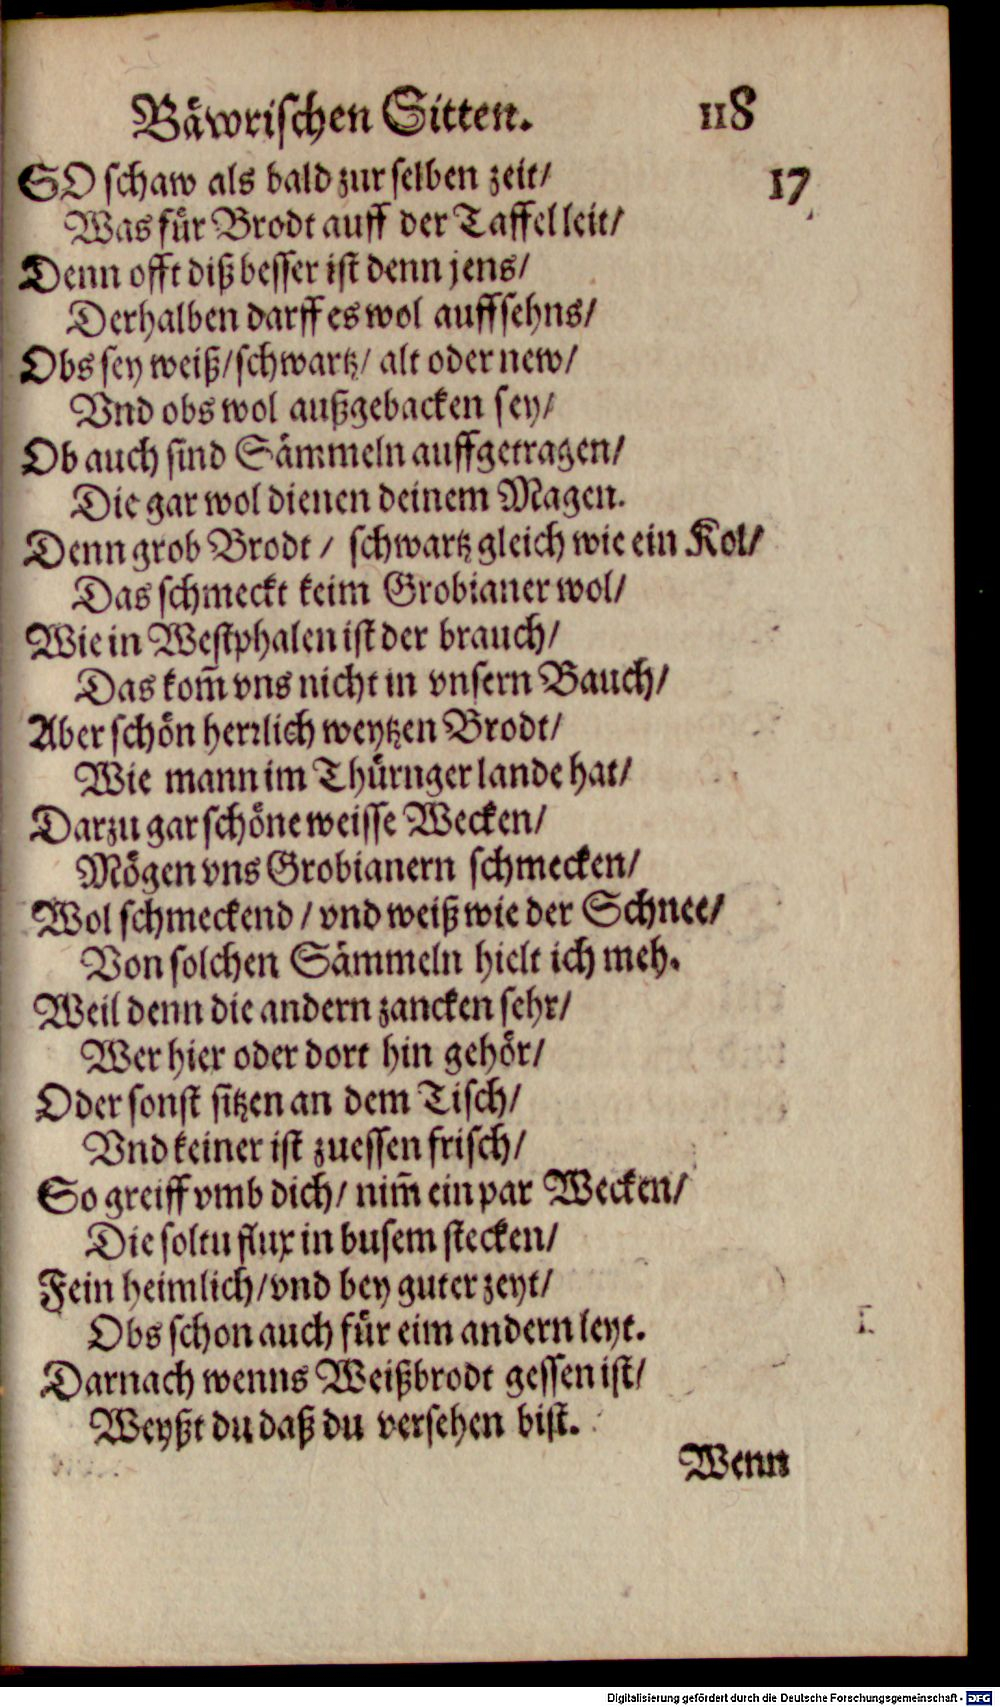 Bäwrischen Sitten. 118
SO schaw als bald zur selben zeit/ 17
Was für Brodt auff der Taffel leit/
Denn offt diß besser ist denn jens/
Derhalben darff es wol auffsehns/
Obs sey weiß/ schwartz/ alt oder new/
Vnd obs wol außgebacken sey/
Ob auch sind Sämmeln auffgetragen/
Die gar wol dienen deinem Magen.
Denn grob Brodt / schwartz gleich wie ein Kol/
Das schmeckt keim Grobianer wol/
Wie in Westphalen ist der brauch/
Das kom̃ vns nicht in vnsern Bauch/
Aber schön herrlich weytzen Brodt/
Wie mann im Thürnger lande hat/
Darzu gar schöne weisse Wecken/
Mögen vns Grobianern schmecken/
Wol schmeckend / vnd weiß wie der Schnee/
Von solchen Sämmeln hielt ich meh.
Weil denn die andern zancken sehr/
Wer hier oder dort hin gehör/
Oder sonst sitzen an dem Tisch/
Vnd keiner ist zuessen frisch/
So greiff vmb dich/ nim̃ ein par Wecken/
Die soltu flux in busem stecken/
Fein heimlich/ vnd bey guter zeyt/
Obs schon auch für eim andern leyt.
Darnach wenns Weißbrodt gessen ist/
Weyßt du daß du versehen bist.
Wenn
Digitalisierung gefördert durch die Deutsche Forschungsgemeinschaft - DFG